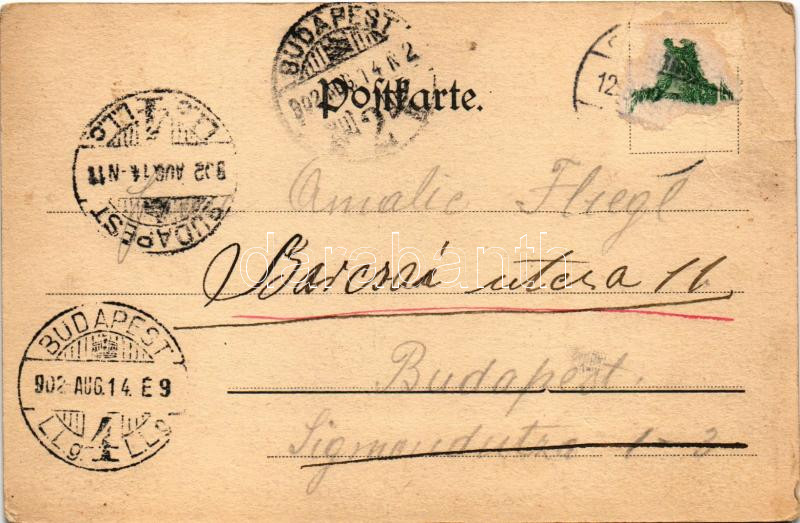 BUDAPEST
902 AUG. 14 N 2
Postkarte.
12.
BUDAPEST
902 AUG. 14 - N 11
Amalie Fliegl
darabanth
Barcsai utcza 11
BUDAPEST
902 AUG. 14. E 9
4
Budapest.
Sigmondutza 1-3